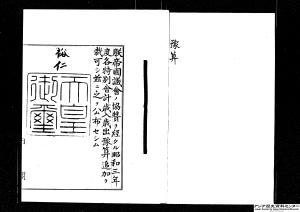 豫算
朕帝國議會ノ協贊ヲ經タル昭和三年
度各特別會計歳入歳出豫算追加ヲ
裁可シ茲ニ之ヲ公布セシム
裕仁
天皇
御璽
アジア歴史資料センター